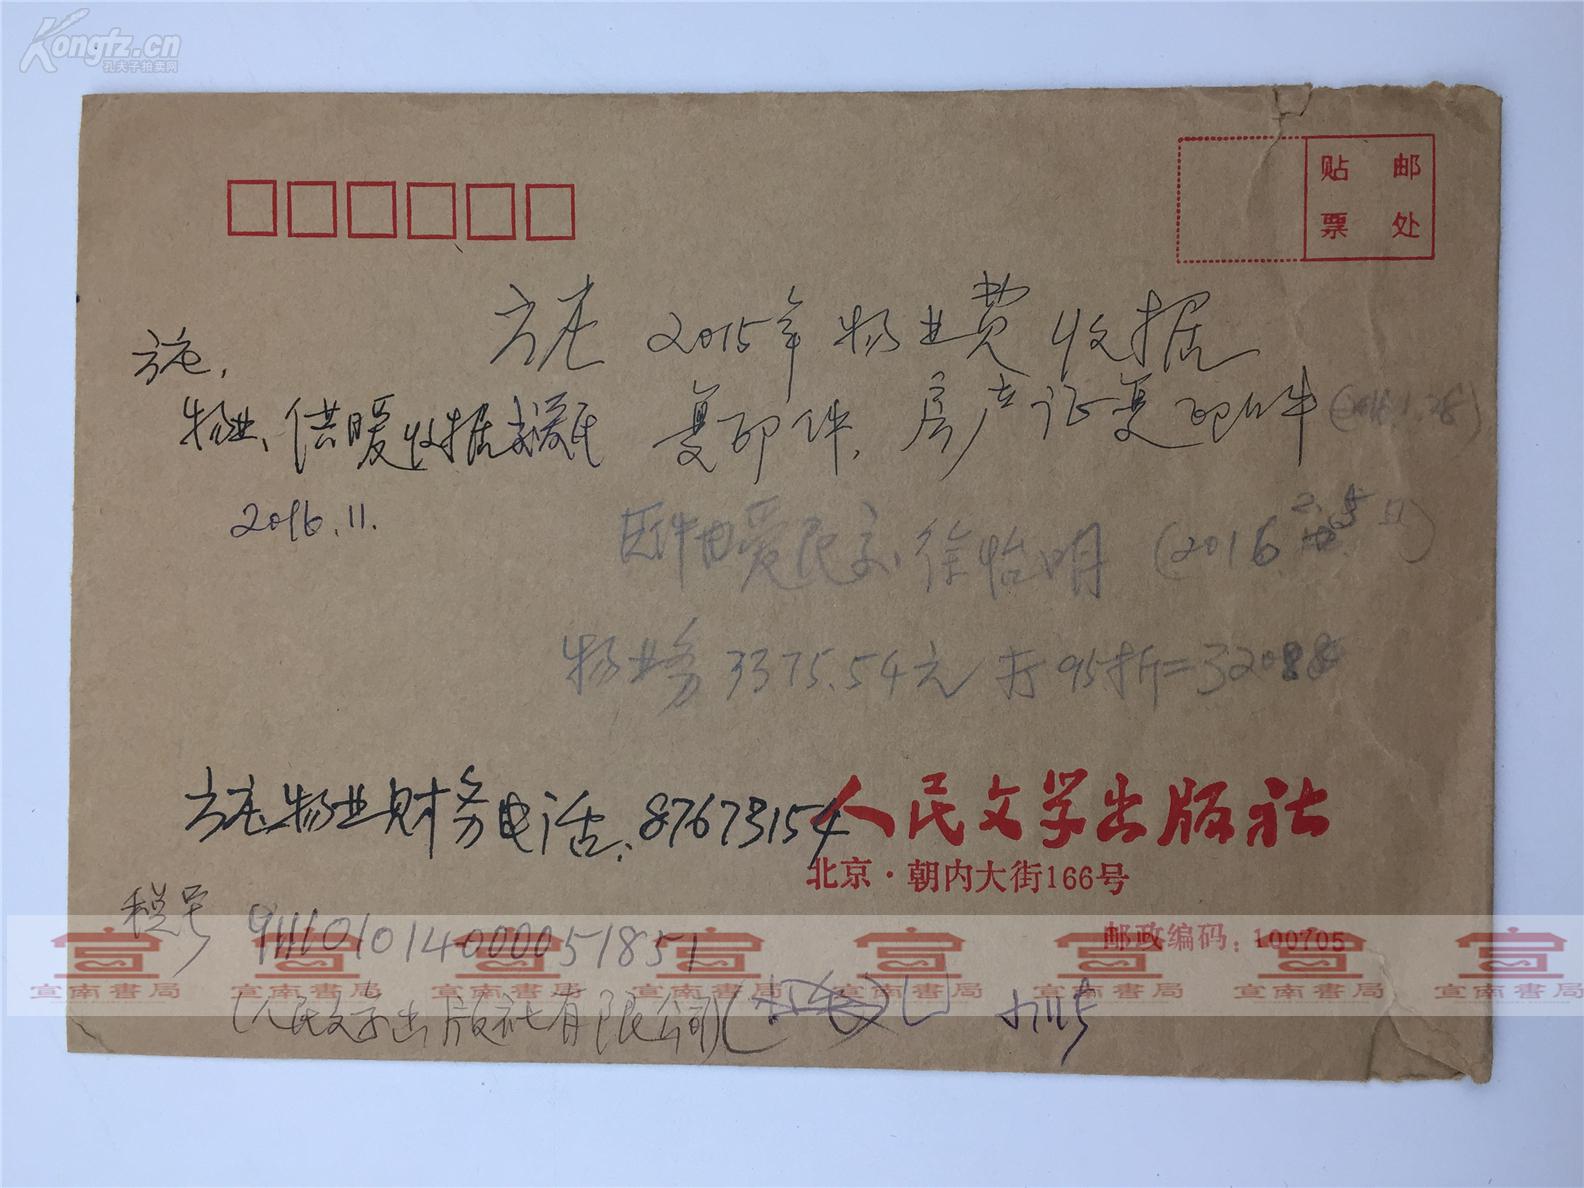 Kongfz.cn
孔夫子拍卖网
贴 邮
票 处
方庄 2015年物业费收据
复印件，房产证复印件
方庄，
物业、供暖收据
2016.11.
爱民交徐怡明 (2016
物业务 3375.54元 打95折=3208
方庄物业财务电话：87673154
人民文学出版社
北京·朝内大街166号
邮政编码：100705
税号 911101014000051851
(人民文学出版社有限公司)
宣南書局 宣南書局 宣南書局 宣南書局 宣南書局 宣南書局 宣南書局 宣南書局